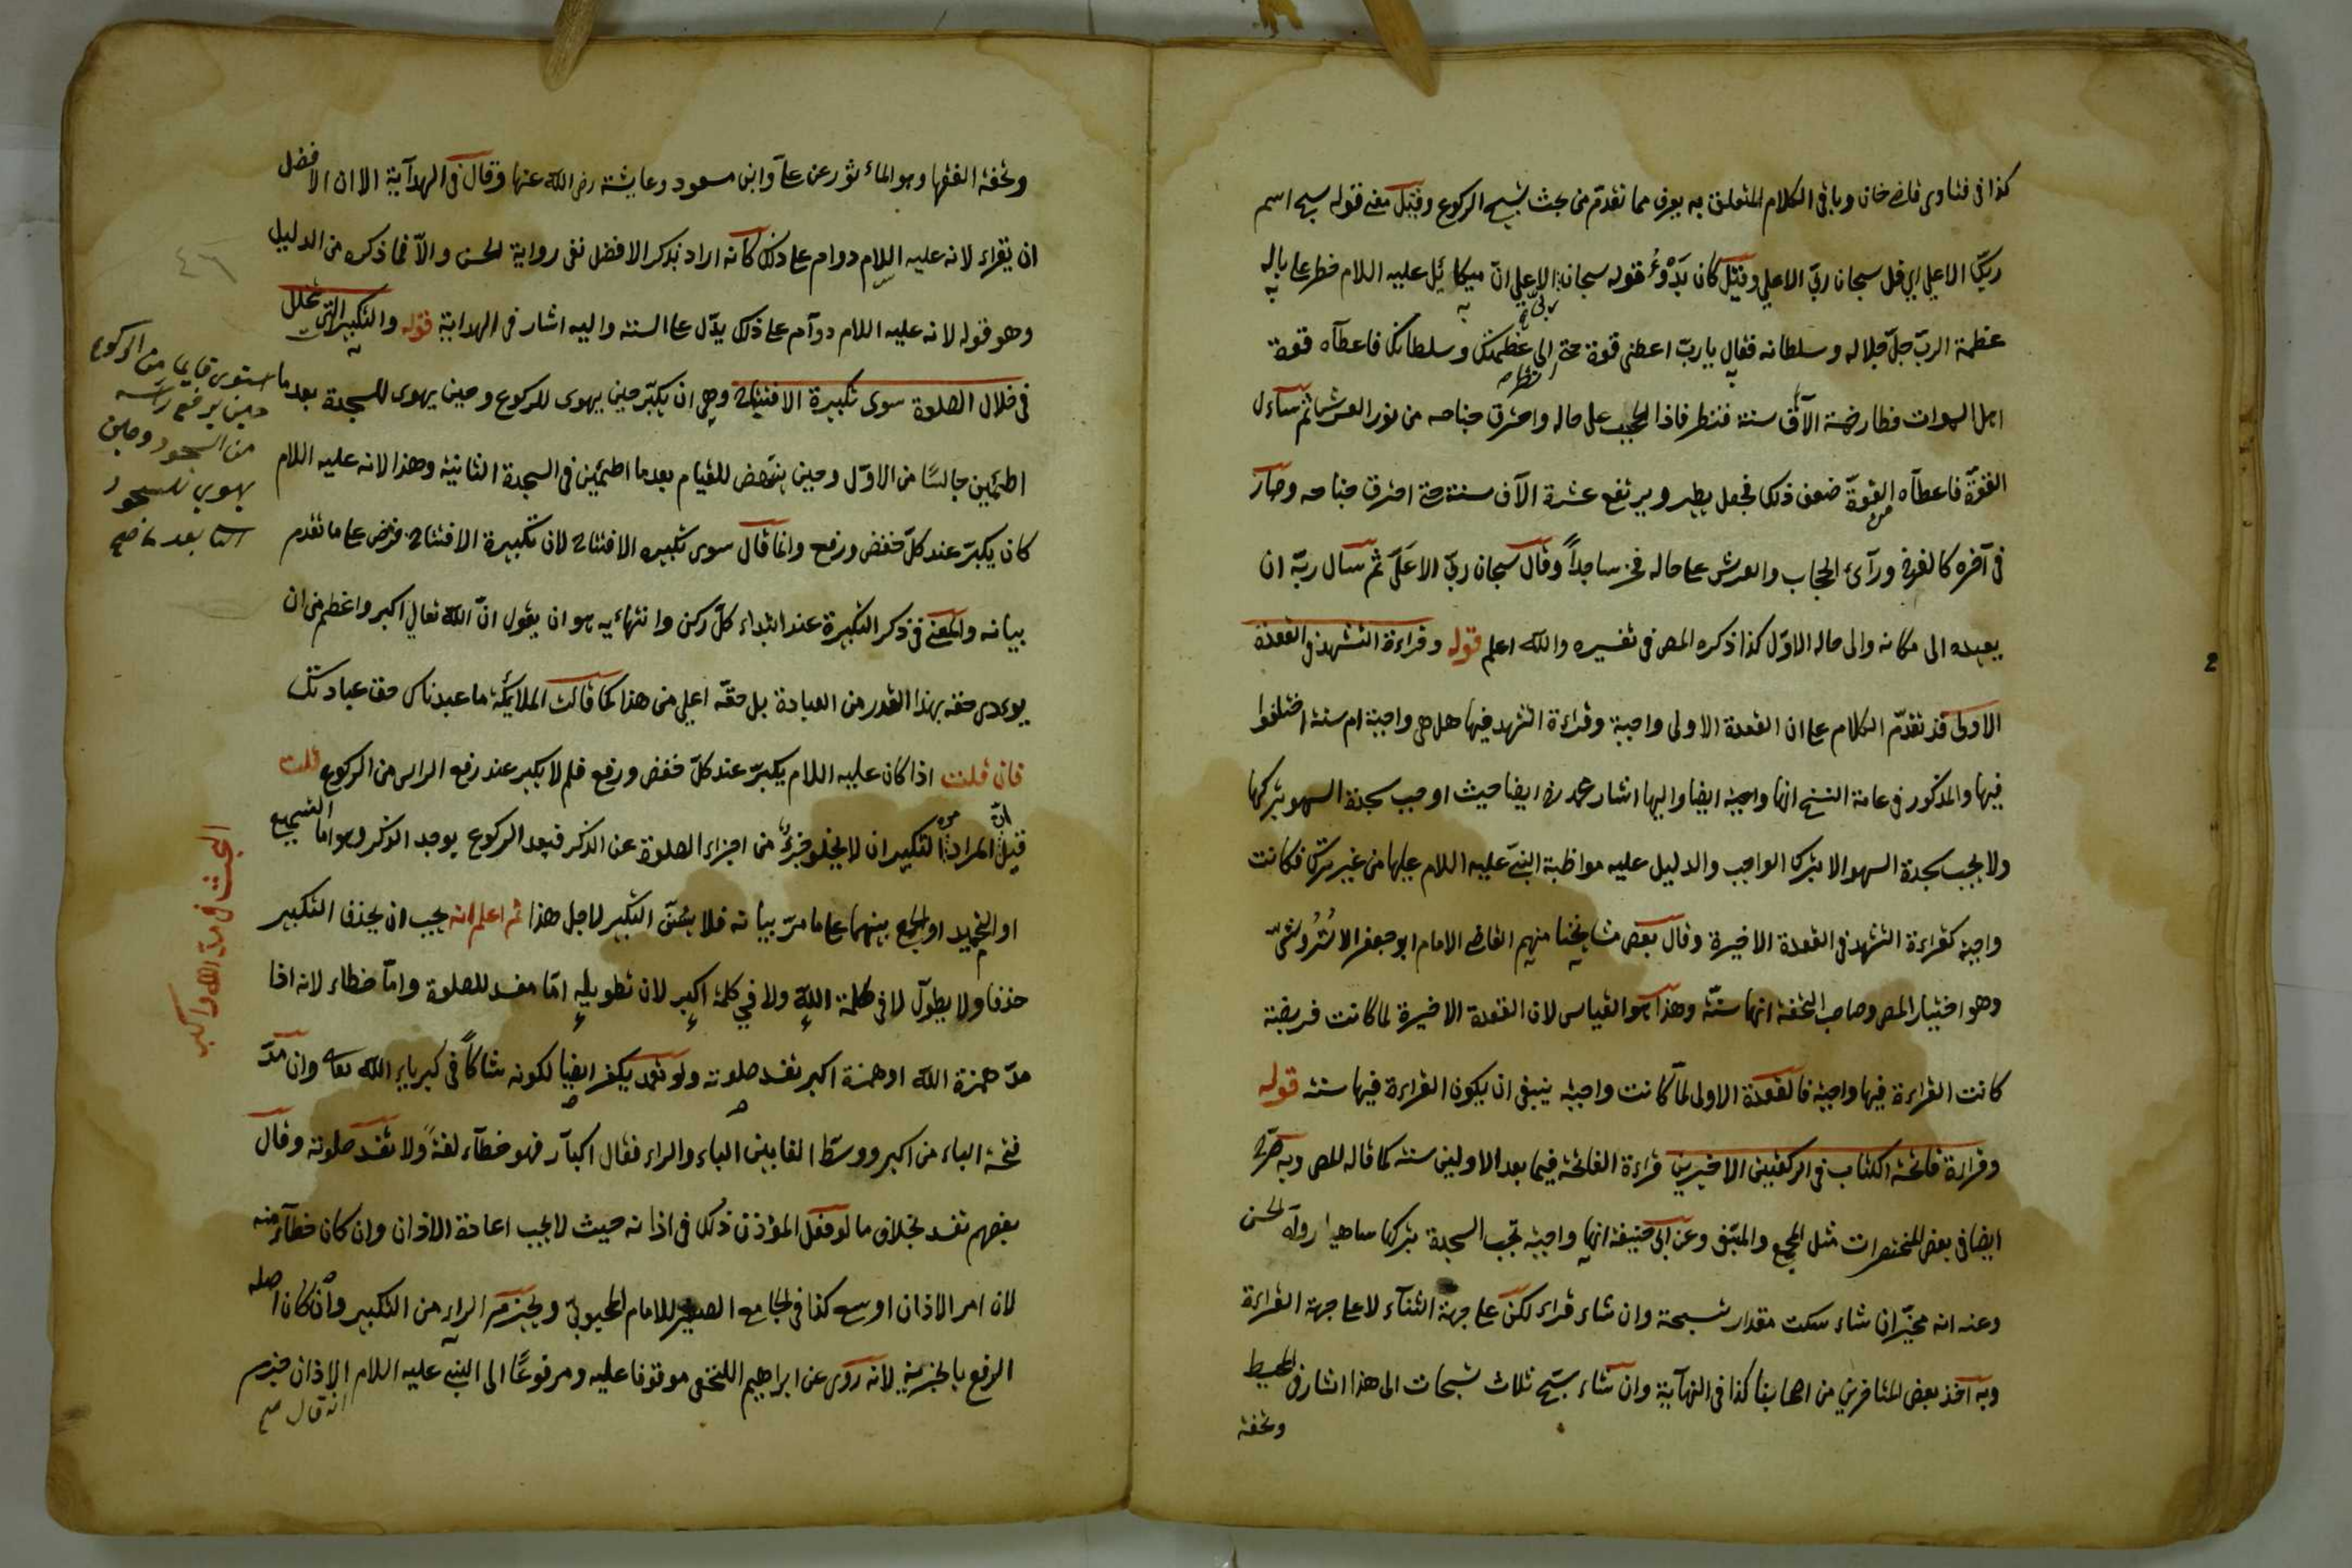 كذا فى فتاوى قاضى خان وباقى الكلام المتعلق به يعرف مما تقدم من بحث تسبيح الركوع وقيل معنى قوله سبح اسم
ربك الاعلى اى قل سبحان ربى الاعلى وقيل كان بدؤ قوله سبحان ربى الاعلى ان ميكائيل عليه السلام خطر على باله
عظمة الرب جل جلاله وسلطانه فقال يا رب اعطنى قوة حتى انظر الى عظمتك وسلطانك فاعطاه قوة
اهل السموات فطار خمسة الآف سنة فنظر فاذا الحجاب على حاله واحترق جناحه من نور العرش ثم سأل
القوة فاعطاه القوة ضعف ذلك فجعل يطير ويرتفع عشرة الآف سنة حتى احترق جناحه وصار
فى آخره كالفرخ ورأى الحجاب والعرش على حاله فخر ساجدا وقال سبحان ربى الاعلى ثم سأل ربه ان
يعيده الى مكانه والى حاله الاول كذا ذكره المص فى تفسيره والله اعلم قوله وقراءة التشهد فى القعدة
الاولى قد تقدم الكلام على ان القعدة الاولى واجبة وقراءة التشهد فيها هل هى واجبة ام سنة اختلفوا
فيها والمذكور فى عامة النسخ انها واجبة ايضا واليها اشار محمد ره ايضا حيث اوجب سجدة السهو بتركها
ولا يجب سجدة السهو الا بترك الواجب والدليل عليه مواظبة النبى عليه السلام عليها من غير ترك فكانت
واجبة كقراءة التشهد فى القعدة الاخيرة وقال بعض مشايخنا منهم القاضى الامام ابو جعفر الاستروشنى
وهو اختيار المص وصاحب التحفة انها سنة وهذا هو القياس لان القعدة الاخيرة لما كانت فريضة
كانت القراءة فيها واجبة فالقعدة الاولى لما كانت واجبة ينبغى ان يكون القراءة فيها سنة قوله
وقراءة فاتحة الكتاب فى الركعتين الاخيرين قراءة الفاتحة فيما بعد الاوليين سنة كما قاله المص وبه صرح
ايضا فى بعض المختصرات مثل المجمع والمبتغى وعن ابى حنيفة انها واجبة تجب السجدة بتركها ساهيا رواه الحسن
وعنه انه مخير ان شاء سكت مقدار تسبيحة وان شاء قراء لكن على جهة الثناء لا على جهة القراءة
وبه اخذ بعض المتأخرين من اصحابنا كذا فى النهاية وان شاء سبح ثلاث تسبيحات الى هذا اشار فى المحيط
وتحفة
وتحفة الفقها وهو المأثور عن على وابن مسعود وعايشة رضى الله عنها وقال فى الهداية الا ان الافضل
ان يقراء لانه عليه السلام دوام على ذلك كانه اراد بذكر الافضل نفى رواية الحسن والا فما ذكره من الدليل
وهو قوله لانه عليه السلام دوام على ذلك يدل على السنة واليه اشار فى الهداية قوله والتكبير التى تخلل
فى خلال الصلوة سوى تكبيرة الافتتاح وهى ان يكبر حين يهوى للركوع وحين يهوى للسجدة بعد ما
استوى قايما من الركوع
حين يرفع رأسه
من السجود وحين
يهوى للسجود
اطمئن جالسا من الاول وحين ينتهض للقيام بعد ما اطمئن فى السجدة الثانية وهذا لانه عليه السلام
كان يكبر عند كل خفض ورفع وانما قال سوى تكبيرة الافتتاح لان تكبيرة الافتتاح فرض على ما تقدم
بيانه والمعنى فى ذكر التكبيرة عند ابتداء كل ركن وانتهائه هو ان يقول ان الله تعالى اكبر واعظم من ان
يؤدى حقه بهذا القدر من العبادة بل حقه اعلى من هذا كما قالت الملائكة ما عبدناك حق عبادتك
فان قلت اذا كان عليه السلام يكبر عند كل خفض ورفع فلم لا يكبر عند رفع الراس من الركوع قلت
قيل ان المراد من التكبير ان لا يخلو جزء من اجزاء الصلوة عن الذكر فبعد الركوع يوجد الذكر وهو اما التسميع
او التحميد او الجمع بينهما على ما مر بيانه فلا يسن التكبير لاجل هذا ثم اعلم انه يجب ان يحذف التكبير
حذفا ولا يطول لا فى كلمة الله ولا فى كلمة اكبر لان تطويله اما مفسد للصلوة واما خطاء لانه اذا
البحث فى مد الله واكبر
مد همزة الله او همزة اكبر تفسد صلوته ولو تعمد يكفر ايضا لكونه شاكا فى كبرياء الله تعالى وان مد
فتحة الباء من اكبر ووسط الفا بين الباء والراء فقال اكبار فهو خطاء لغة ولا تفسد صلوته وقال
بعضهم تفسد بخلاف ما لو فعل المؤذن ذلك فى اذانه حيث لا يجب اعادة الاذان وان كان خطاء منه
لان امر الاذان اوسع كذا فى الجامع الصغير للامام المحبوبى ويجزم الراء من التكبير وان كان اصله
الرفع بالخبرية لانه روى عن ابراهيم النخعى موقوفا عليه ومرفوعا الى النبى عليه السلام الاذان جزم
انه قال صح